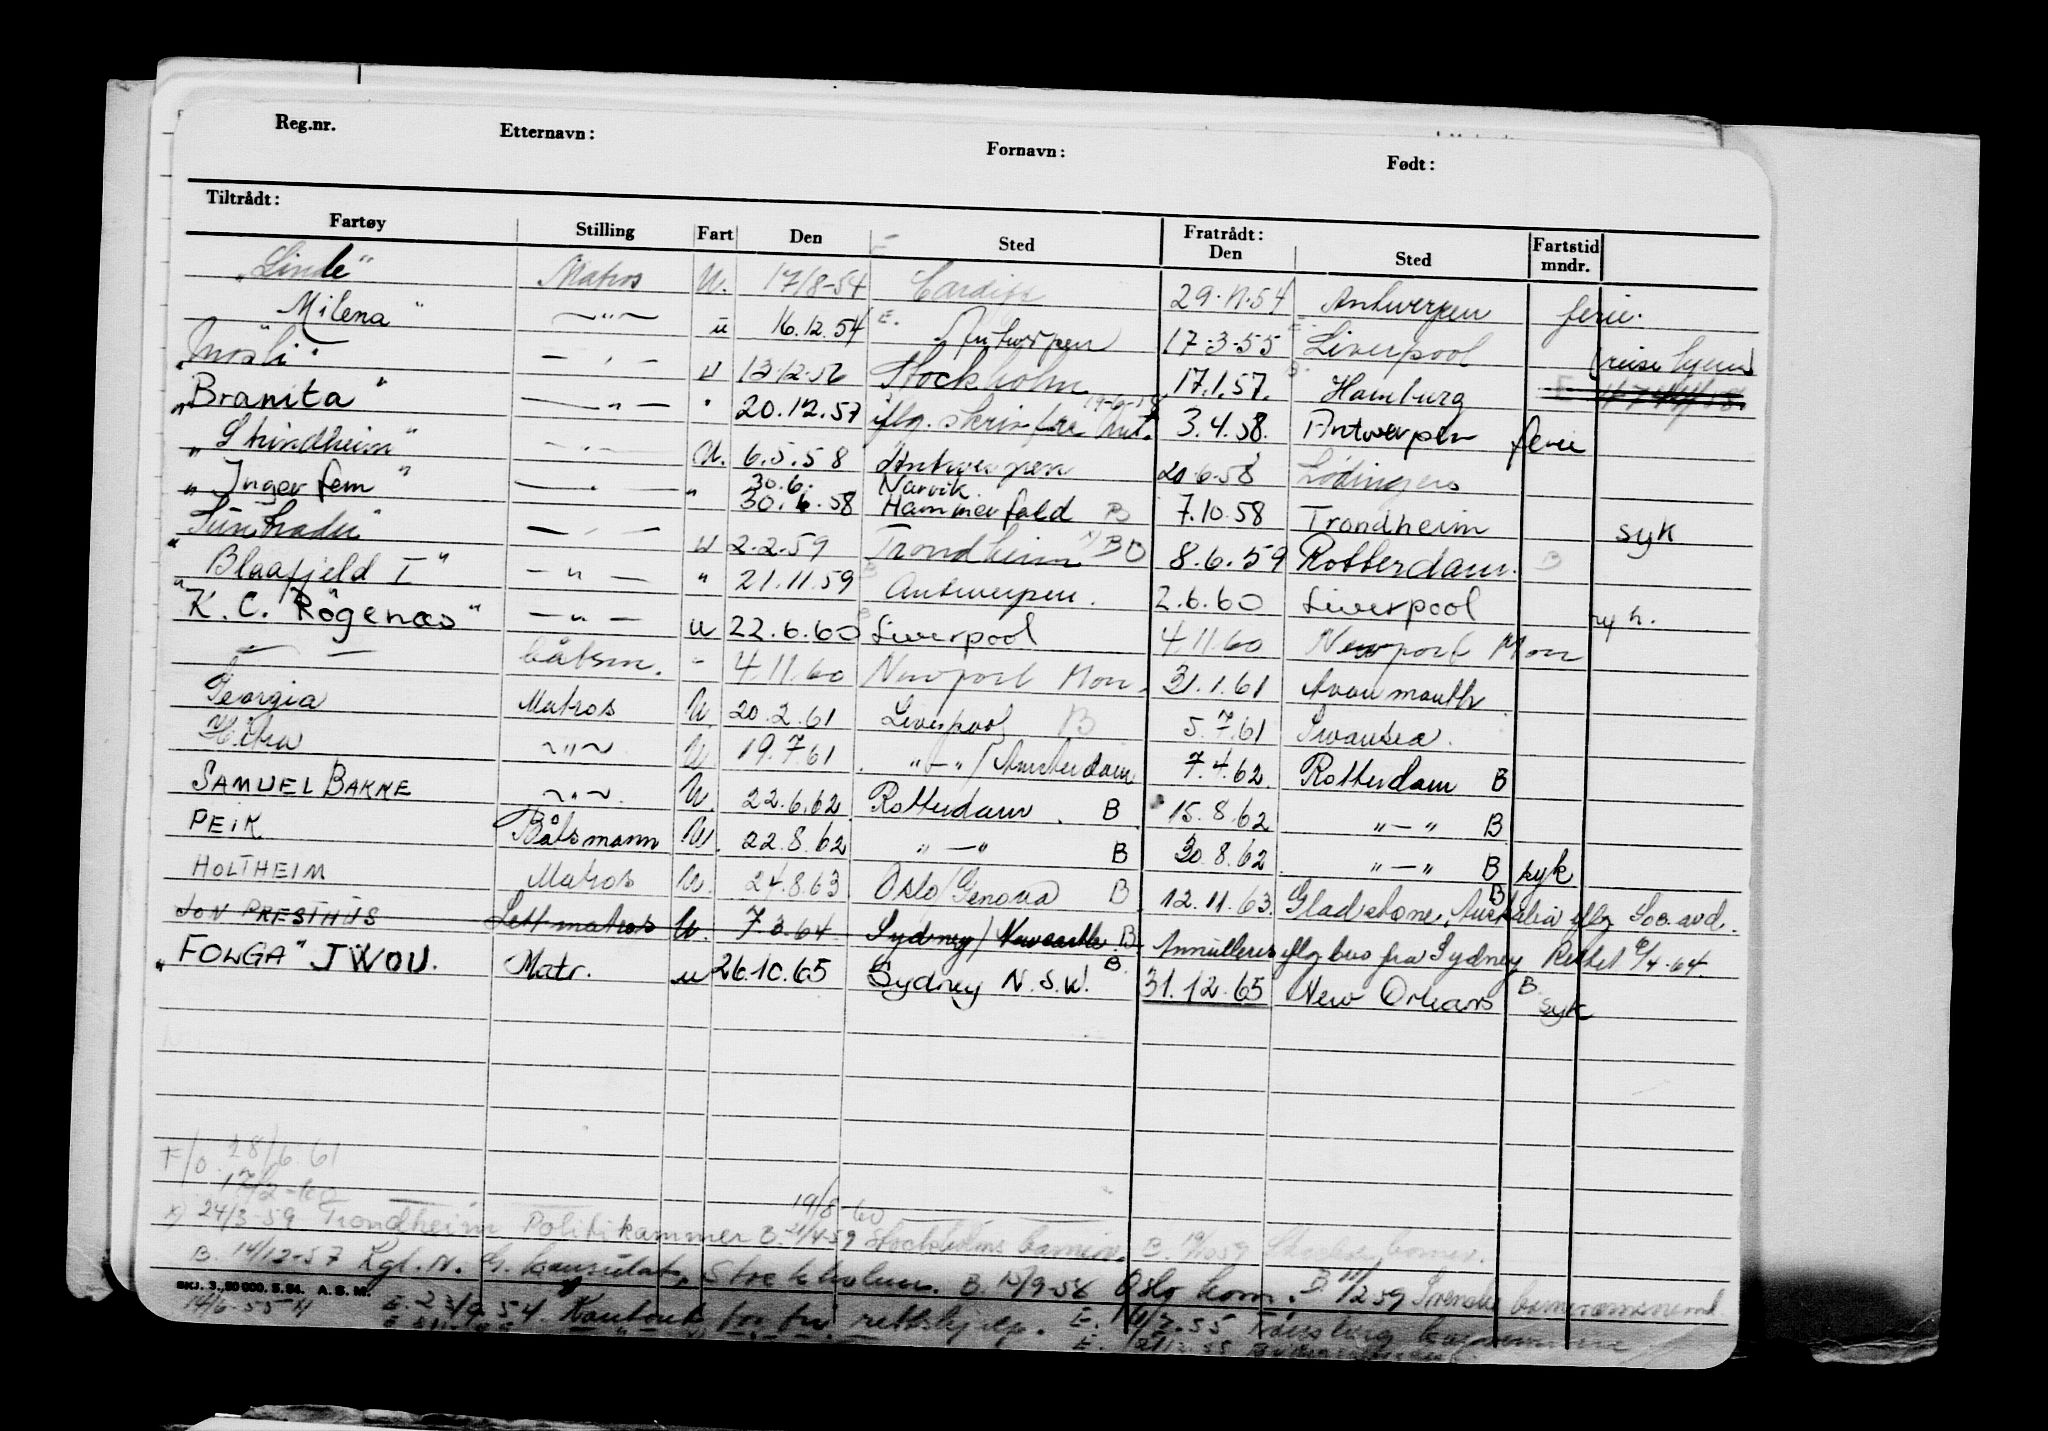 Reg.nr. Etternavn: Fornavn: Født:
Tiltrådt: Fratrådt:
Fartøy Stilling Fart Den Sted Den Sted Fartstid mndr.
"Linde" Matros U. 17/8-54 Cardiff 29.11.54 Antwerpen ferie.
Milena" —"— u 16.12.54 E. Antwerpen 17-3-55 Liverpool (reise hjem)
"Mosli" — " — u 13.12.56 Stockholm 17.1.57. Hamburg
"Branita" — " — " 20.12.57 iflg. skriv fra Ant. 3.4.58. Antwerpen ferie
" — U. 6.5.58 Antwerpen 20.6.58 Lødingen
30.6. Narvik
"Inger fem" — " — " 30.6.58 Hammerfest B 7.10.58 Trondheim syk
— " — u 2.2.59 Trondheim x) B O 8.6.59 Rotterdam. B
"Blaafjeld I" — " — " 21.11.59 B Antwerpen. 2.6.60 Liverpool
"K. C. Rögenæs" — " — u 22.6.60 B Liverpool 4.11.60 Newport Mon
— " — båtsm. " 4.11.60 Newport Mon. 31.1.61 Avonmouth
Georgia Matros U 20.2.61 Liverpool B 5.7.61 Swansea.
Hitra —"— U 19.7.61 "—"/Amsterdam 7.4.62. Rotterdam B
SAMUEL BAKKE —"—. U. 22.6.62 Rotterdam. B 15.8.62 "—" B
PEIK Båtsmann U. 22.8.62 "—" B 30.8.62 "—" B syk
HOLTHEIM Matros U. 24.8.63 Oslo/Genova B 12.11.63. Gladstone, Australia B iflg Soa. avd.
JON PRESTHUS Lettmatros U. 7.3.64 Sydney/Newcastle. B. Annulleres iflg brev fra Sydney Rettet 6/4-64
"FOLGA" JWOU. Matr. u 26.10.65 Sydney N.S.W. B. 31.12.65 New Orleans B syk
F/O. 28/6.61
17/2-60 19/8-60
x) 24/3-59 Trondheim Politikammer B. 21/4-59 Stockholms B.
B. 14/12-57 Kgl. N. G. konsulat, Stockholm. B. 15/9-58 Oslo kom. B 11/12 59 Svenske
SKJ. 3., 50 000. 5. 54. A. S. M.
14/6-55 E. 23/9-54. Kontoret for fri rettshjelp. E. Tønsberg